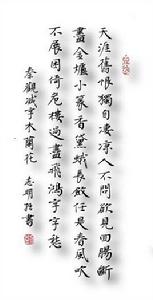 天涯舊恨獨自凄涼人不問欲見回腸斷
盡金爐小篆香黛蛾長斂任是春風吹
不展困倚危樓過盡飛鴻字字愁
秦觀減字木蘭花 志明書